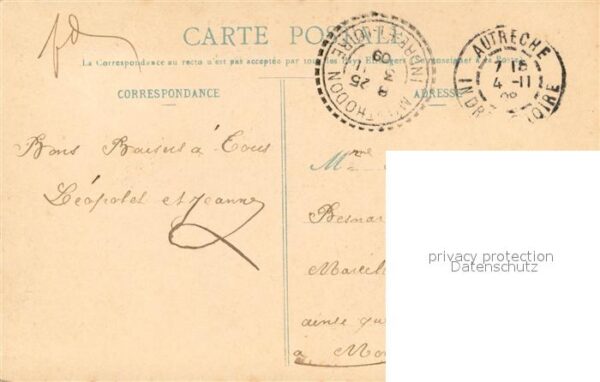 CARTE POSTALE
La Correspondance au recto n'est pas acceptée par tous les Pays Etrangers (Se renseigner à la Poste)
CORRESPONDANCE
ADRESSE
AUTRÈCHE
7 15
4 -11
INDRE LOIRE
INDRE ET LOIRE
8 25
3 11
09
Bons Baisers à Tous
Léopold et Jeanne
Mme
Besnar
Marcil
ainsi qu
à Mo
privacy protection
Datenschutz